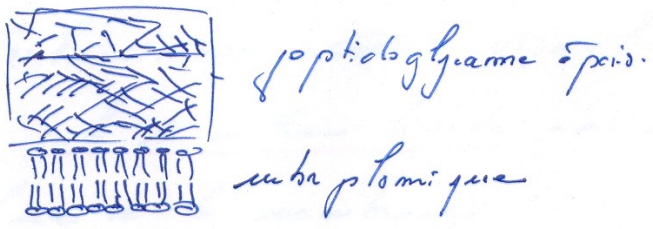 peptidoglycanne épais.
mbr plasmique